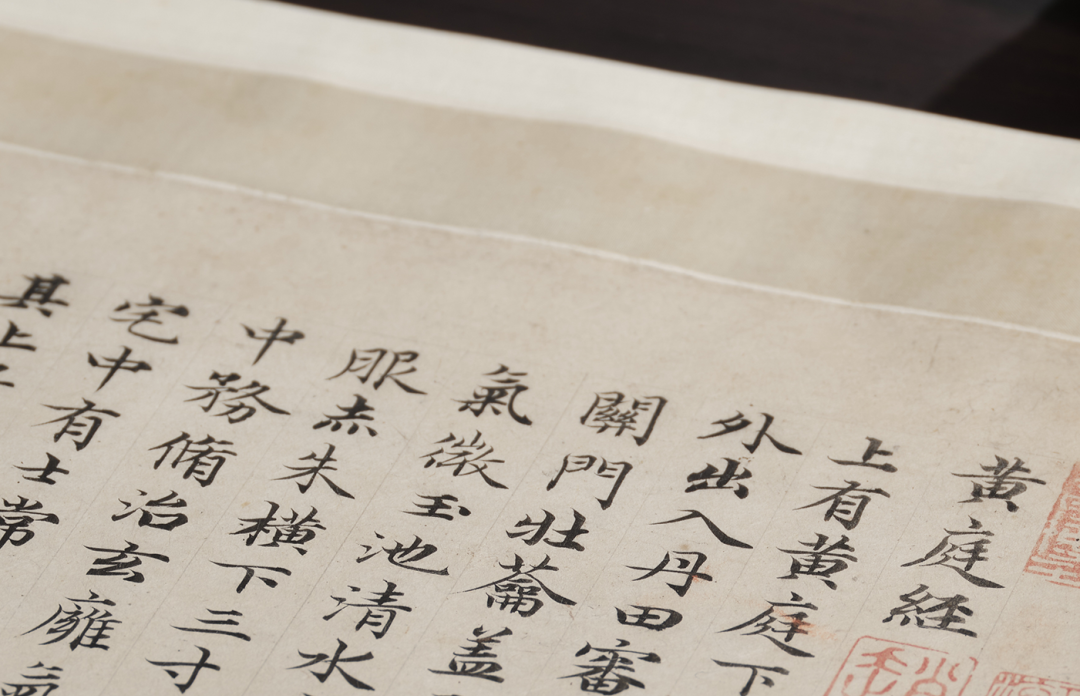 黄庭経
上有黄庭下
外出入丹田審
關門壮蘥盖
氣微玉池清水
服赤朱横下三寸
中務脩治玄廱氣
宅中有士常
其上